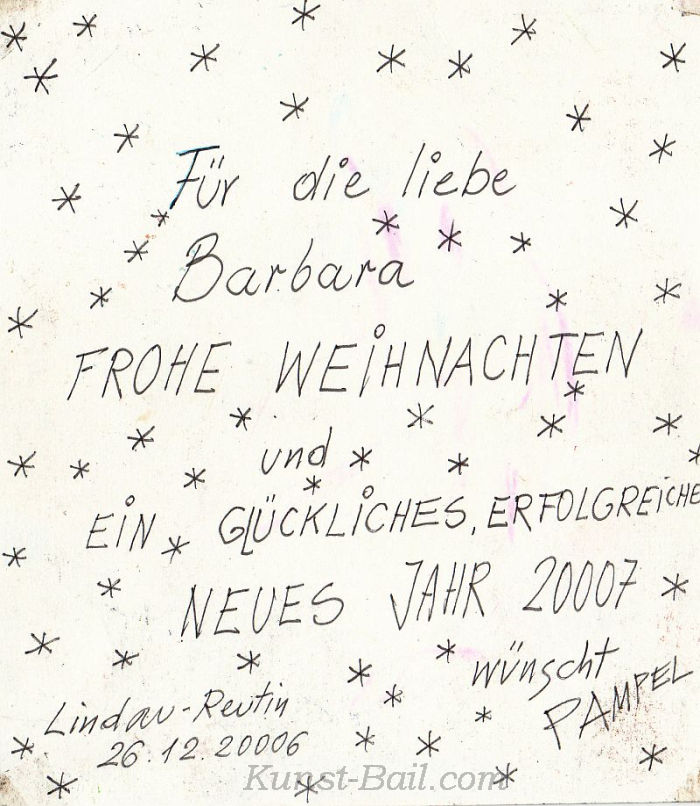 Für die liebe
Barbara
FROHE WEIHNACHTEN
und
EIN GLÜCKLICHES, ERFOLGREICHE
NEUES JAHR 20007
wünscht
PAMPEL
Lindau-Reutin
26.12.20006
Kunst-Bail.com